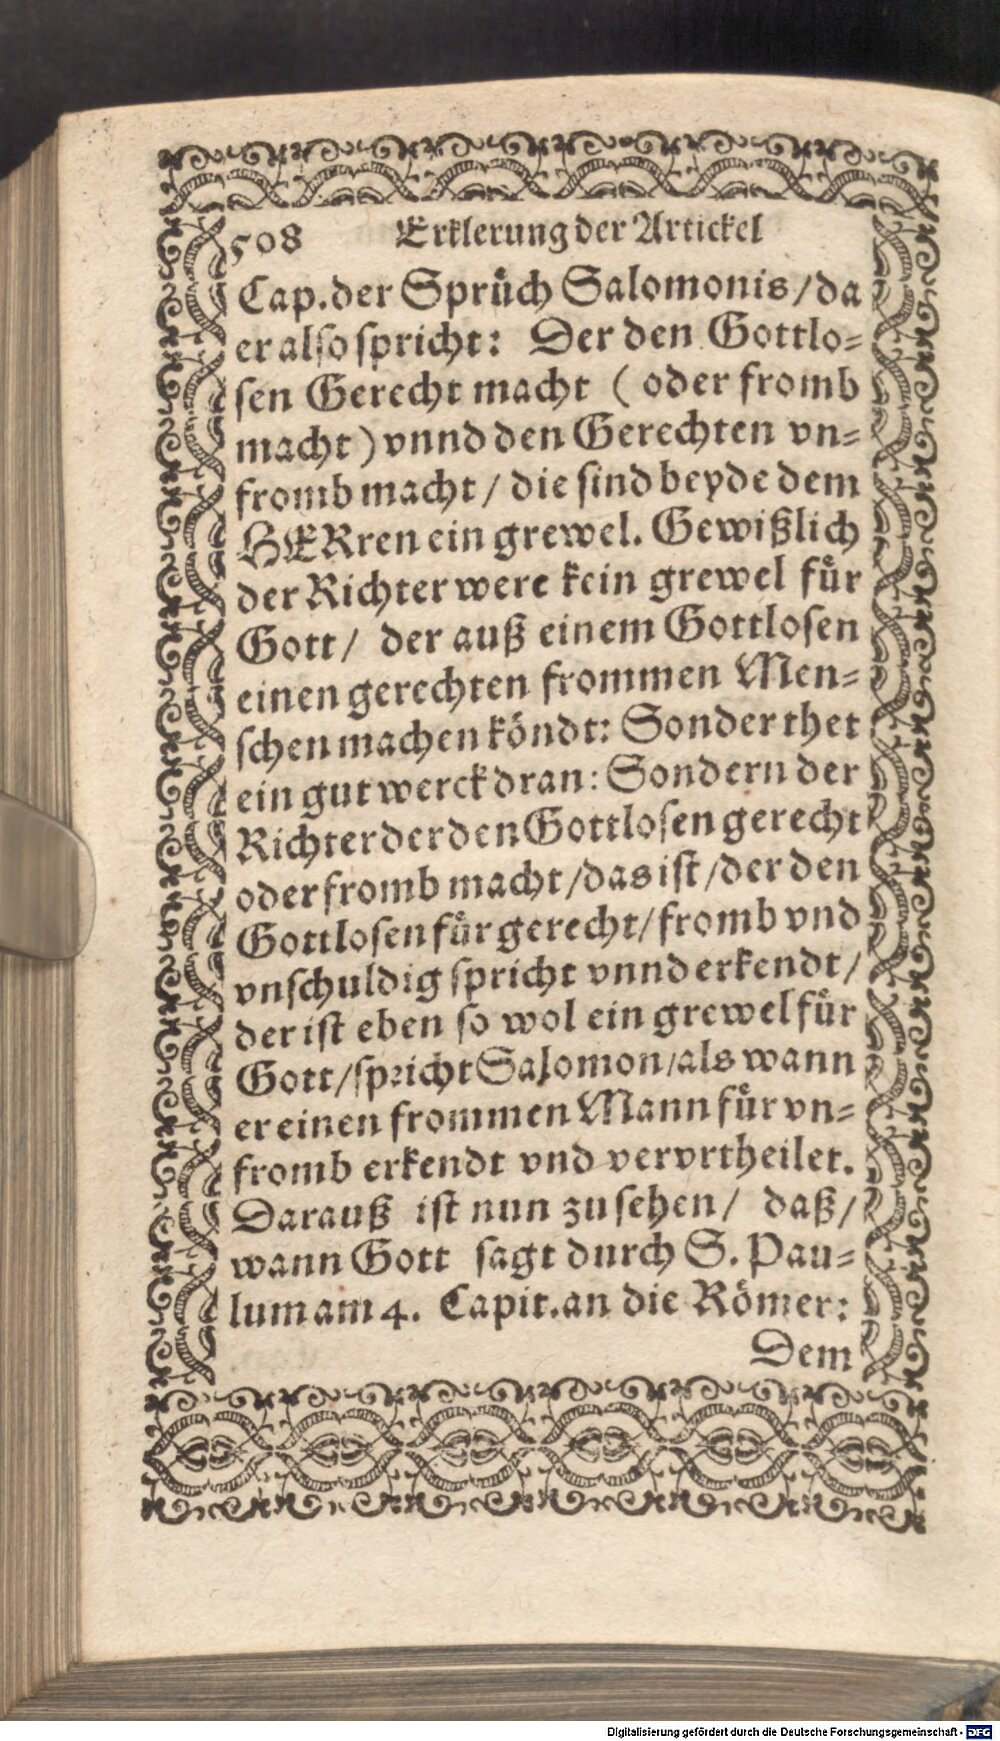 508 Erklerung der Artickel
Cap. der Sprůch Salomonis / da
er also spricht: Der den Gottlo-
sen Gerecht macht ( oder fromb
macht ) vnnd den Gerechten vn-
fromb macht / die sind beyde dem
HERren ein grewel. Gewißlich
der Richter were kein grewel fůr
Gott / der auß einem Gottlosen
einen gerechten frommen Men-
schen machen köndt: Sonder thet
ein gut werck dran: Sondern der
Richter der den Gottlosen gerecht
oder fromb macht / das ist / der den
Gottlosen fůr gerecht / fromb vnd
vnschuldig spricht vnnd erkendt /
der ist eben so wol ein grewel fůr
Gott / spricht Salomon / als wann
er einen frommen Mann fůr vn-
fromb erkendt vnd vervrtheilet.
Darauß ist nun zu sehen / daß /
wann Gott sagt durch S. Pau-
lum am 4. Capit. an die Römer:
Dem
Digitalisierung gefördert durch die Deutsche Forschungsgemeinschaft - DFG